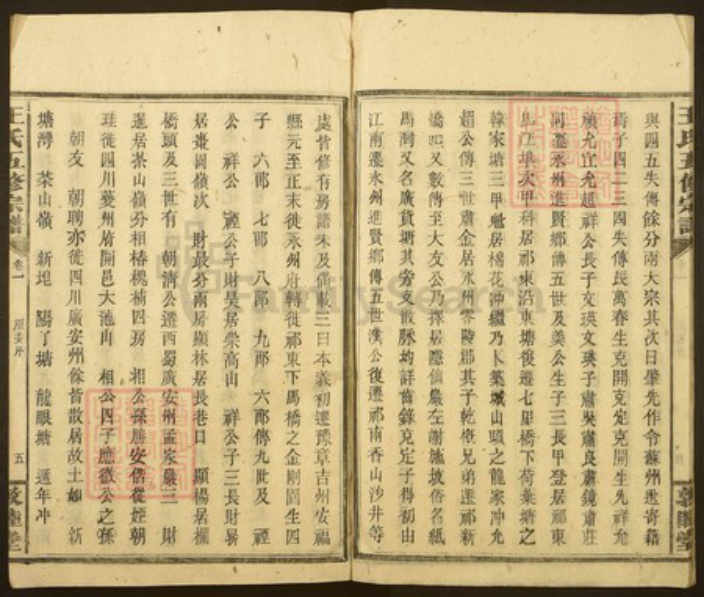 王氏五修宗譜
敦睦堂
與四五失傳餘分兩大宗其次曰肇先作令蘇州遂寄籍
焉子四二三四失傳長萬春生克開克定克開生先祥允
禎允宜允超祥公長子文瑛文瑛子肅奐肅良肅鏡肅莊
同遷永州進賢鄉傳五世及美公生子三長甲登居祁東
烏江埠次甲科居祁東沿東塘復遷七里橋下荷葉塘之
韓家塘三甲魁居棉花沖繼乃卜築城山頭之龍家沖允
超公傳三世肅金居永州零陵郡其子乾概兄弟遷祁新
橋又數傳至大友公乃擇居應仙巖左謝塘坡俗名紙
馬灣又名廣貨塘其旁支散脈均詳齒錄克定子得初由
江南遷永州進賢鄉傳五世漢公復遷祁南香山沙井等
處皆修有房譜未及備載三曰本義初遷豫章吉州安福
縣元至正末徙永州府轉徙祁東下馬橋之金則圖生四
子 六郎 七郎 八郎 九郎 六郎傳九世及 禋
公 祥公 禋公子財昊居崇高山 祥公子三長財勗
居棗園嶺次 財最分兩房顯林居長巷口 顯楊居楓
橋頭及三世有 朝清公遷西蜀廣安州孟家巖三 財
暹居茶山嶺分相椿槐楠四房 相公孫勝安偕從姪朝
珪徙四川夔州府開邑大池山 相公四子應徵公之孫
朝友 朝聘亦徙四川廣安州餘皆散居故土如 新
塘灣 茶山嶺 新堤 陽了塘 龍眼塘 遞年冲
王氏五修宗譜
卷一
原委序
五
敦睦堂
FamilySearch